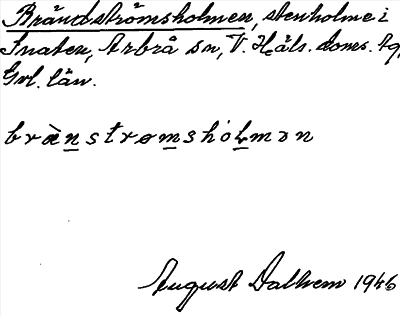 Brändströmsholmen, stenholme i
Snaten, Arbrå sn, V. Häls. doms. tg,
Gvl. län.
brànstrømsholmən
August Dalhem 1946